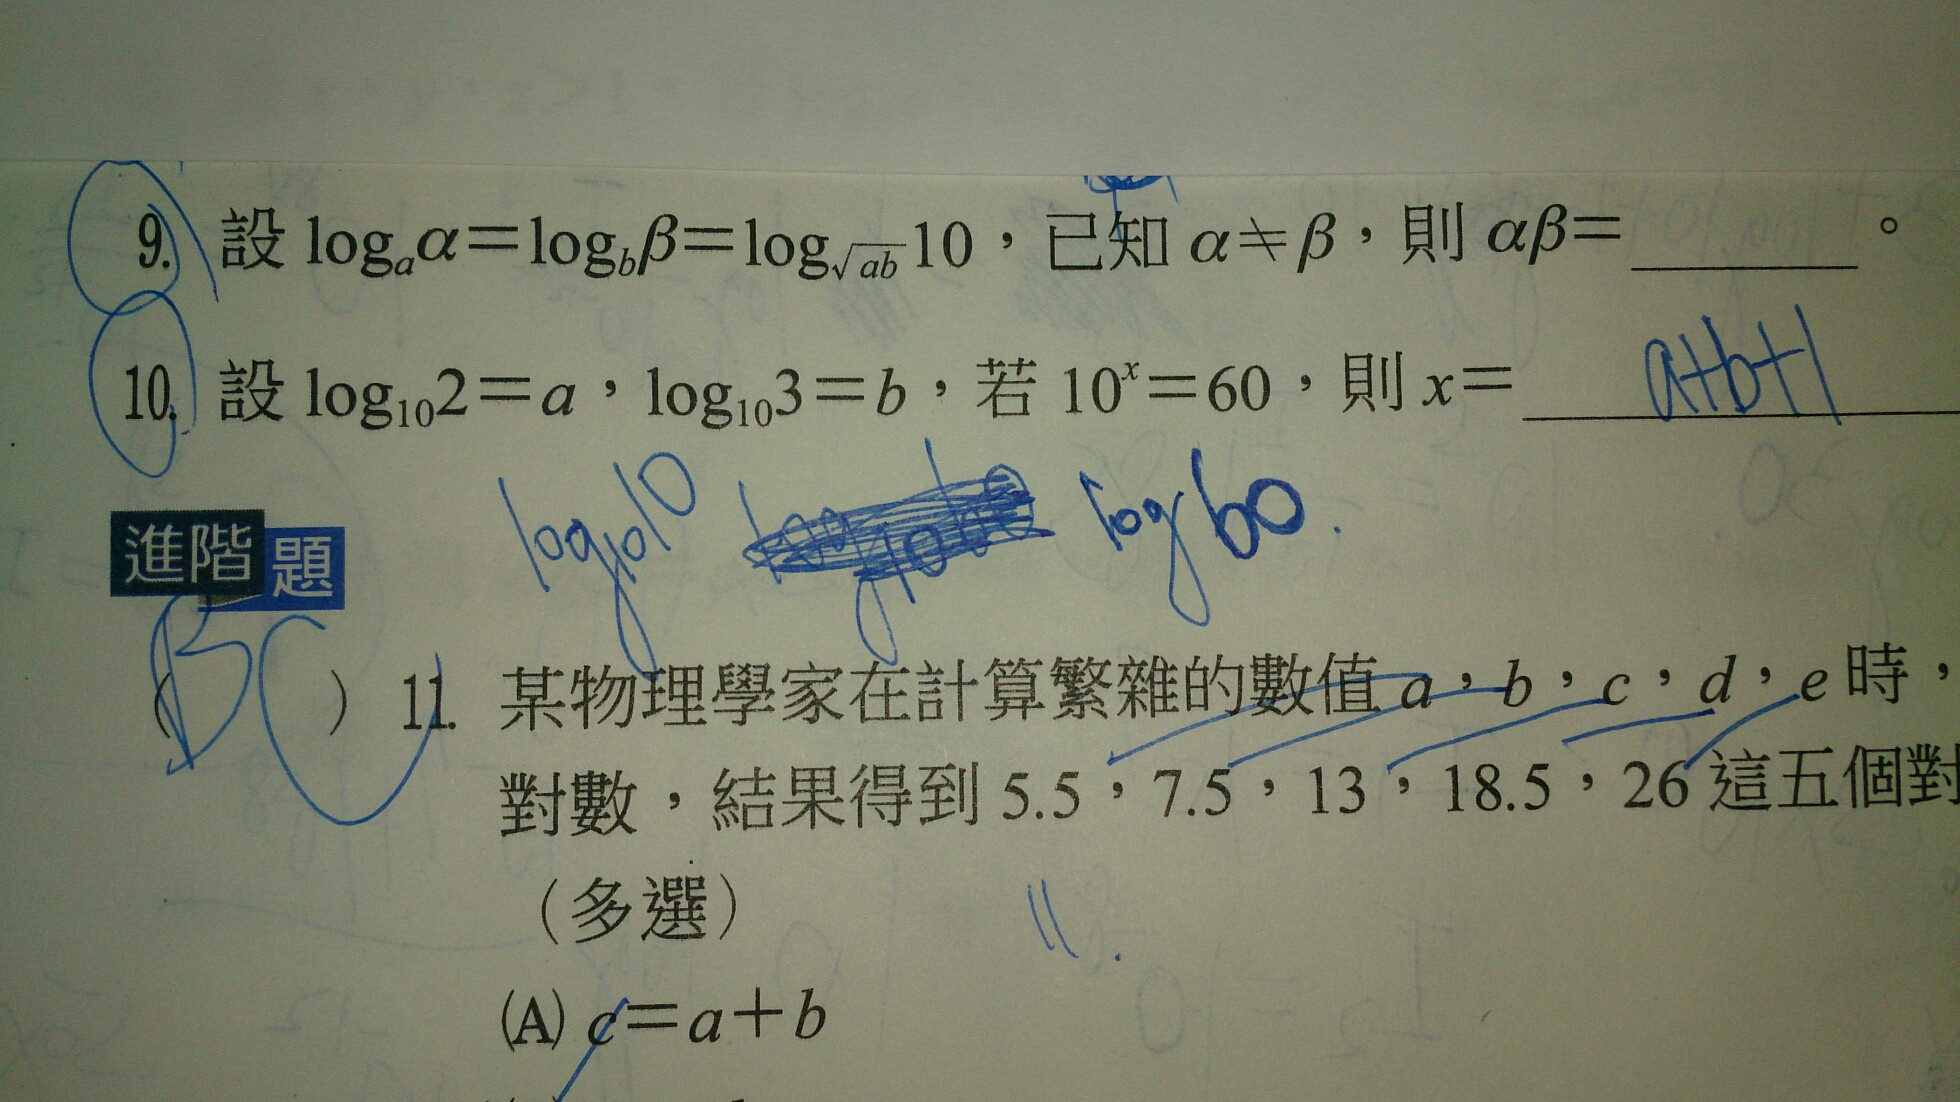 9. 設 logₐα=log_bβ=log_√ab 10，已知 α≠β，則 αβ=______。
10. 設 log₁₀2=a，log₁₀3=b，若 10ˣ=60，則 x= a+b+1
log₁₀10 log 60.
進階題
(BC) 11. 某物理學家在計算繁雜的數值 a，b，c，d，e 時，
對數，結果得到 5.5，7.5，13，18.5，26 這五個對
（多選）
11.
(A) c=a+b